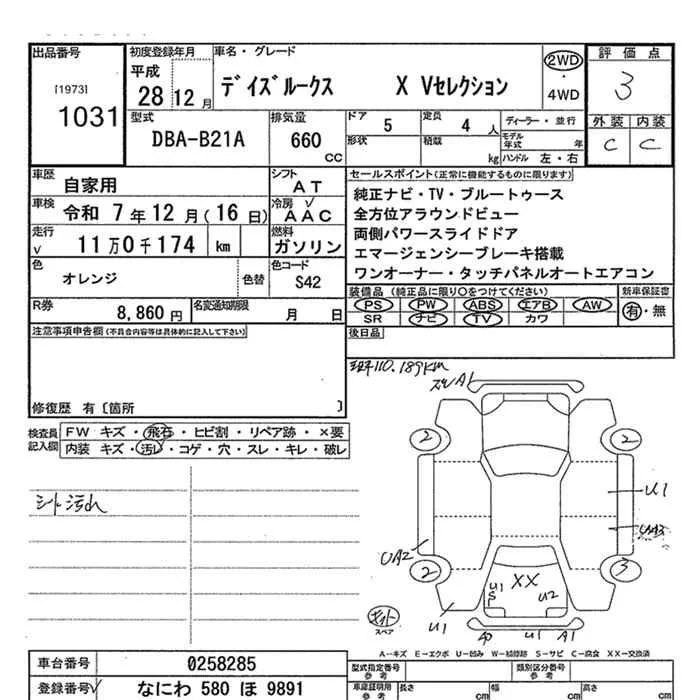 出品番号 初度登録年月 車名・グレード 評価点
[1973] 平成 2WD
1031 28 12月 デイズルークス X Vセレクション ・ 3
4WD
型式 排気量 ドア 定員 ディーラー・並行 外装 内装
DBA-B21A 660 CC 5 4人 モデル年式 年 C C
形状 積載 kg ハンドル 左・右
車歴 シフト セールスポイント(正常に機能するものに限ります)
自家用 AT 純正ナビ・TV・ブルートゥース
車検 冷房 全方位アラウンドビュー
令和 7年12月(16日) AAC 両側パワースライドドア
走行 燃料 エマージェンシーブレーキ搭載
11万0千174 km ガソリン ワンオーナー・タッチパネルオートエアコン
色 色替 色コード
オレンジ S42
装備品(純正品に限り○をつけてください) 新車保証書
R券 名変通知期限 PS PW ABS エアB AW 有・無
8,860円 月 日 SR ナビ TV カワ
注意事項申告欄(不具合内容等は具体的に記入して下さい) 後日品
110.189KM
A1
修復歴 有〔箇所 〕
検査員記入欄 FW キズ・飛石・ヒビ割・リペア跡・×要
内装 キズ・汚レ・コゲ・穴・スレ・キレ・破レ
シート汚れ
2 2
U1
UA2
2 3
U1 S XX U2
U1 U1 A1
スペア
A-キズ E-エクボ U-凹み W-補修跡 S-サビ C-腐食 XX-交換済
車台番号 0258285 型式指定番号 参考 類別区分番号 参考
登録番号 なにわ 580 ほ 9891 車庫証明用 参考 長さ cm 幅 cm 高さ cm